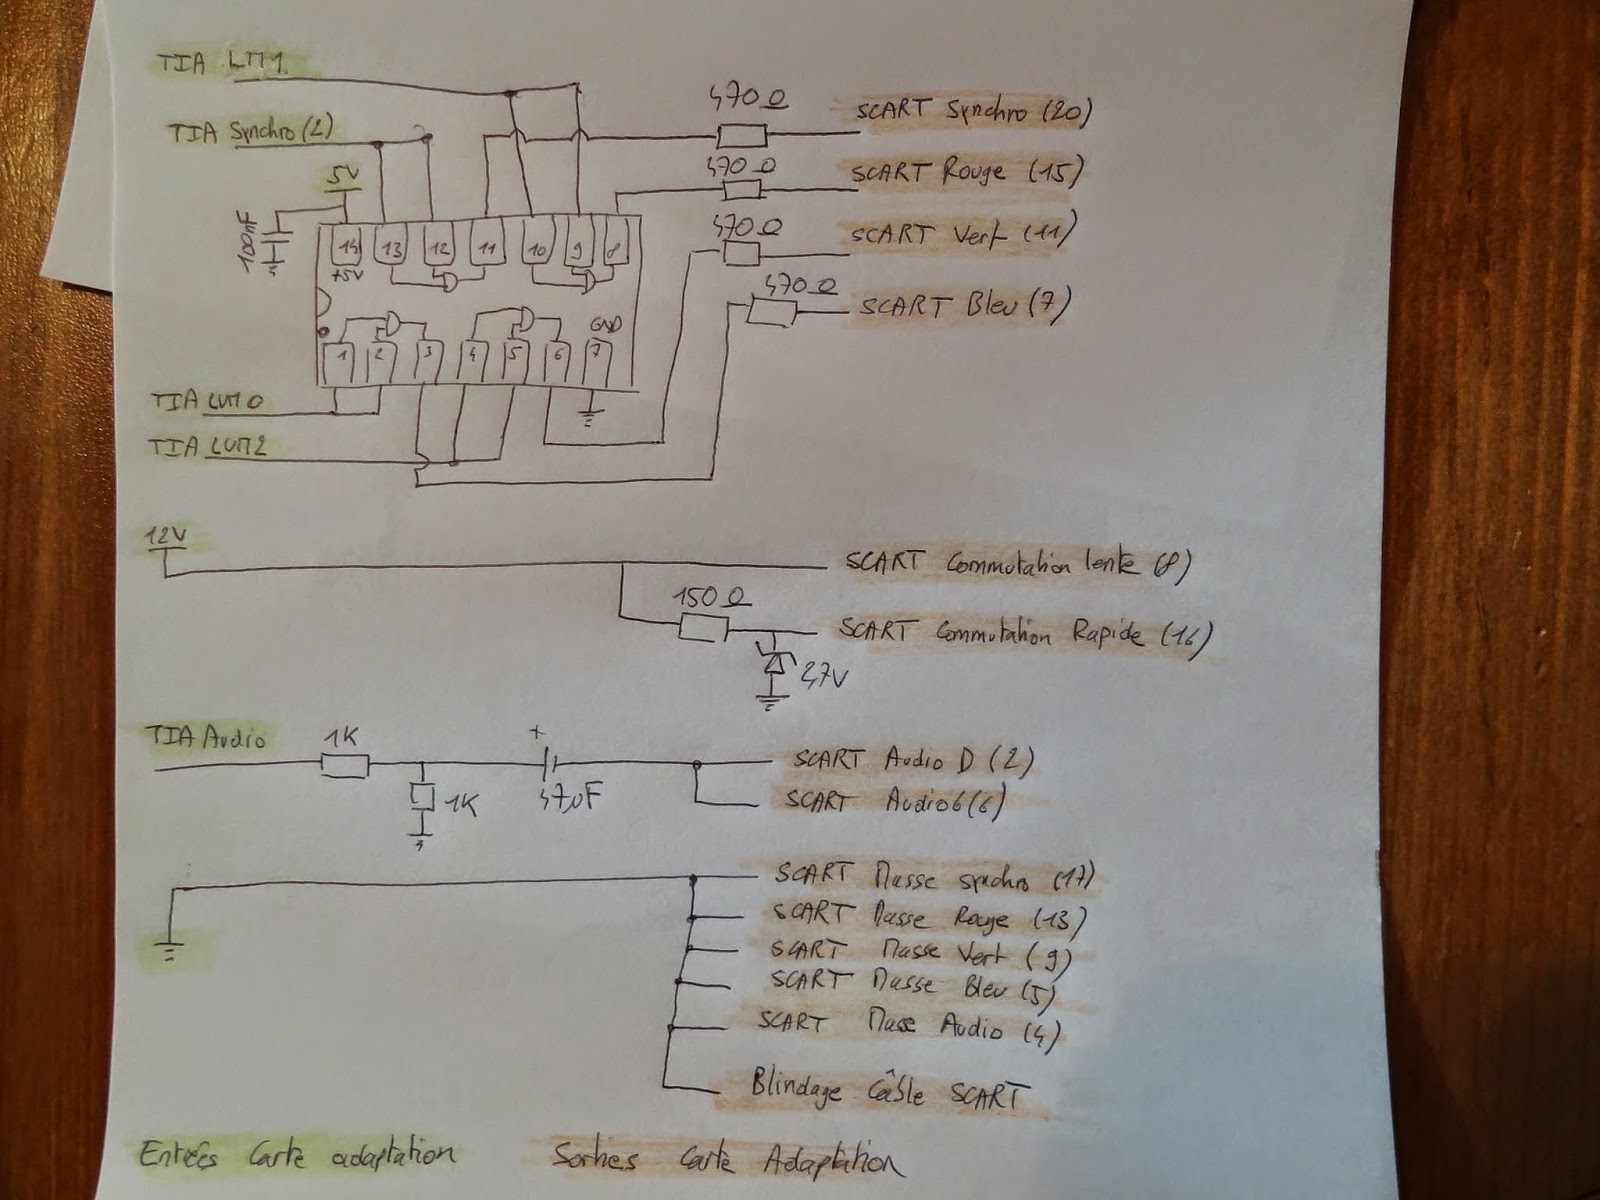 TIA LUM1
470Ω
SCART Synchro (20)
TIA Synchro (2)
470Ω
SCART Rouge (15)
5V
100nF
470Ω
SCART Vert (11)
14 13 12 11 10 9 8
+5V
470Ω
SCART Bleu (7)
GND
1 2 3 4 5 6 7
TIA LUM0
TIA LUM2
12V
SCART Commutation lente (8)
150Ω
SCART Commutation Rapide (16)
2,7V
TIA Audio
1K
+
SCART Audio D (2)
1K
47µF
SCART Audio G (6)
SCART Masse synchro (17)
SCART Masse Rouge (13)
SCART Masse Vert (9)
SCART Masse Bleu (5)
SCART Masse Audio (4)
Blindage Câble SCART
Entrées Carte adaptation
Sorties Carte Adaptation